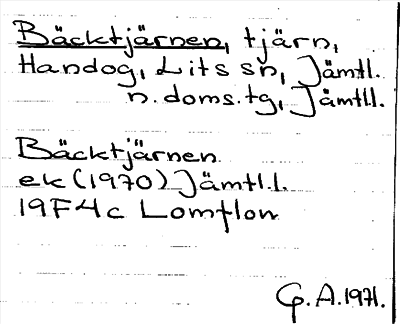 Bäcktjärnen, tjärn,
Handog, Lits sn, Jämtl.
n. doms.tg, Jämtl.l.
Bäcktjärnen
ek (1970) Jämtl.l.
19F4c Lomflon
G.A. 1971.